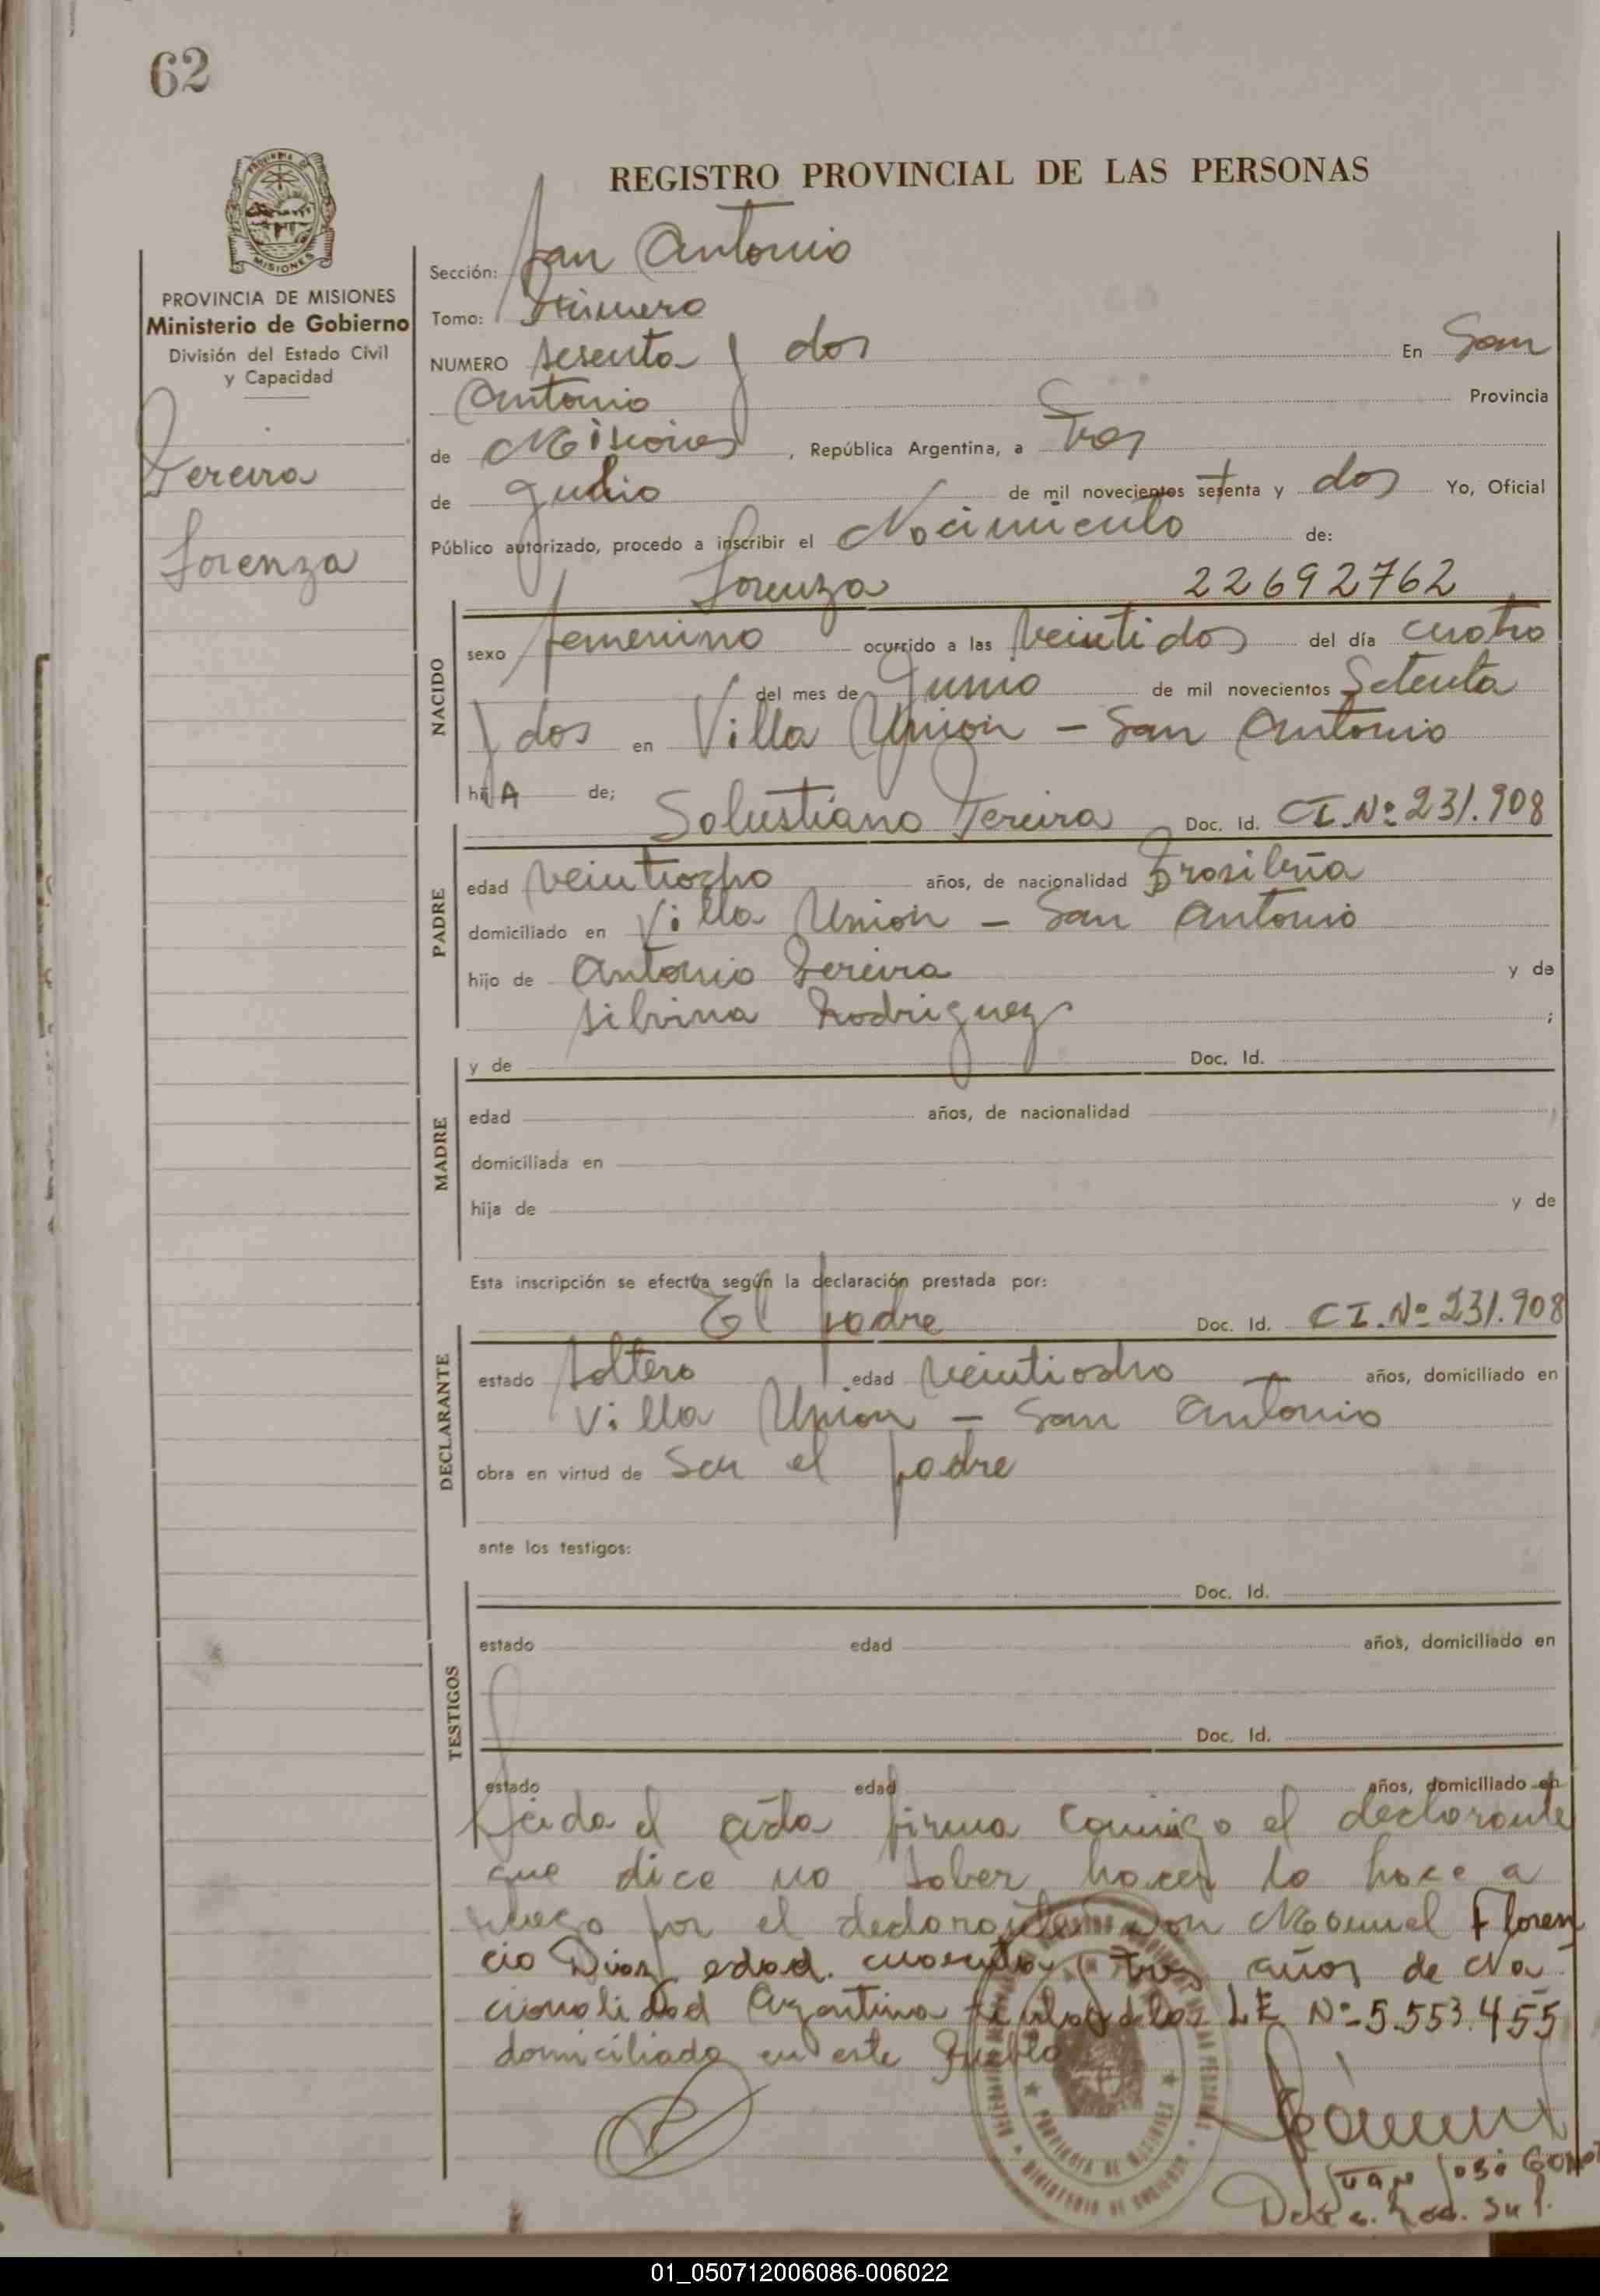 62
REGISTRO PROVINCIAL DE LAS PERSONAS
PROVINCIA DE MISIONES
Ministerio de Gobierno
División del Estado Civil
y Capacidad
Pereira
Lorenza
Sección: San Antonio
Tomo: Primero
NUMERO sesenta y dos En San
Antonio Provincia
de Misiones, República Argentina, a Tres
de Julio de mil novecientos setenta y dos Yo, Oficial
Público autorizado, procedo a inscribir el Nacimiento de:
Lorenza 22692762
NACIDO
sexo femenino ocurrido a las veintidos del día cuatro
del mes de Junio de mil novecientos Setenta
y dos en Villa Union - San Antonio
hijA de;
Solustiano Pereira Doc. Id. CI. Nº 231.908
PADRE
edad veintiocho años, de nacionalidad Brasileña
domiciliado en Villa Union - San Antonio
hijo de Antonio Pereira y de
Silvina Rodriguez ;
y de Doc. Id.
MADRE
edad años, de nacionalidad
domiciliada en
hija de y de
Esta inscripción se efectúa según la declaración prestada por:
El padre Doc. Id. CI. Nº 231.908
DECLARANTE
estado soltero edad veintiocho años, domiciliado en
Villa Union - San Antonio
obra en virtud de Ser el padre
ante los testigos:
Doc. Id.
TESTIGOS
estado edad años, domiciliado en
Doc. Id.
estado edad años, domiciliado en
Leida el acta firma conmigo el declarante
que dice no saber hacer lo hace a
ruego por el declarante Don Manuel Floren
cio Diaz edad. cuarenta y tres años de Na
cionalidad Argentina LE Nº 5.553.455
domiciliado en este Pueblo
PROVINCIA DE MISIONES
MINISTERIO DE GOBIERNO
Juan José
01_050712006086-006022